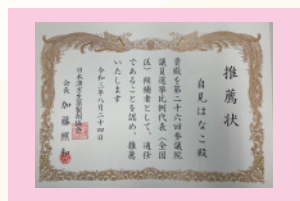 推薦状
自見はなこ殿
貴殿を第二十六回参議院
議員選挙比例代表(全国
区)候補者として、適任
であることを認め、推薦
いたします
令和三年八月二十四日
日本漢方生薬製剤協会
会長 加藤照和